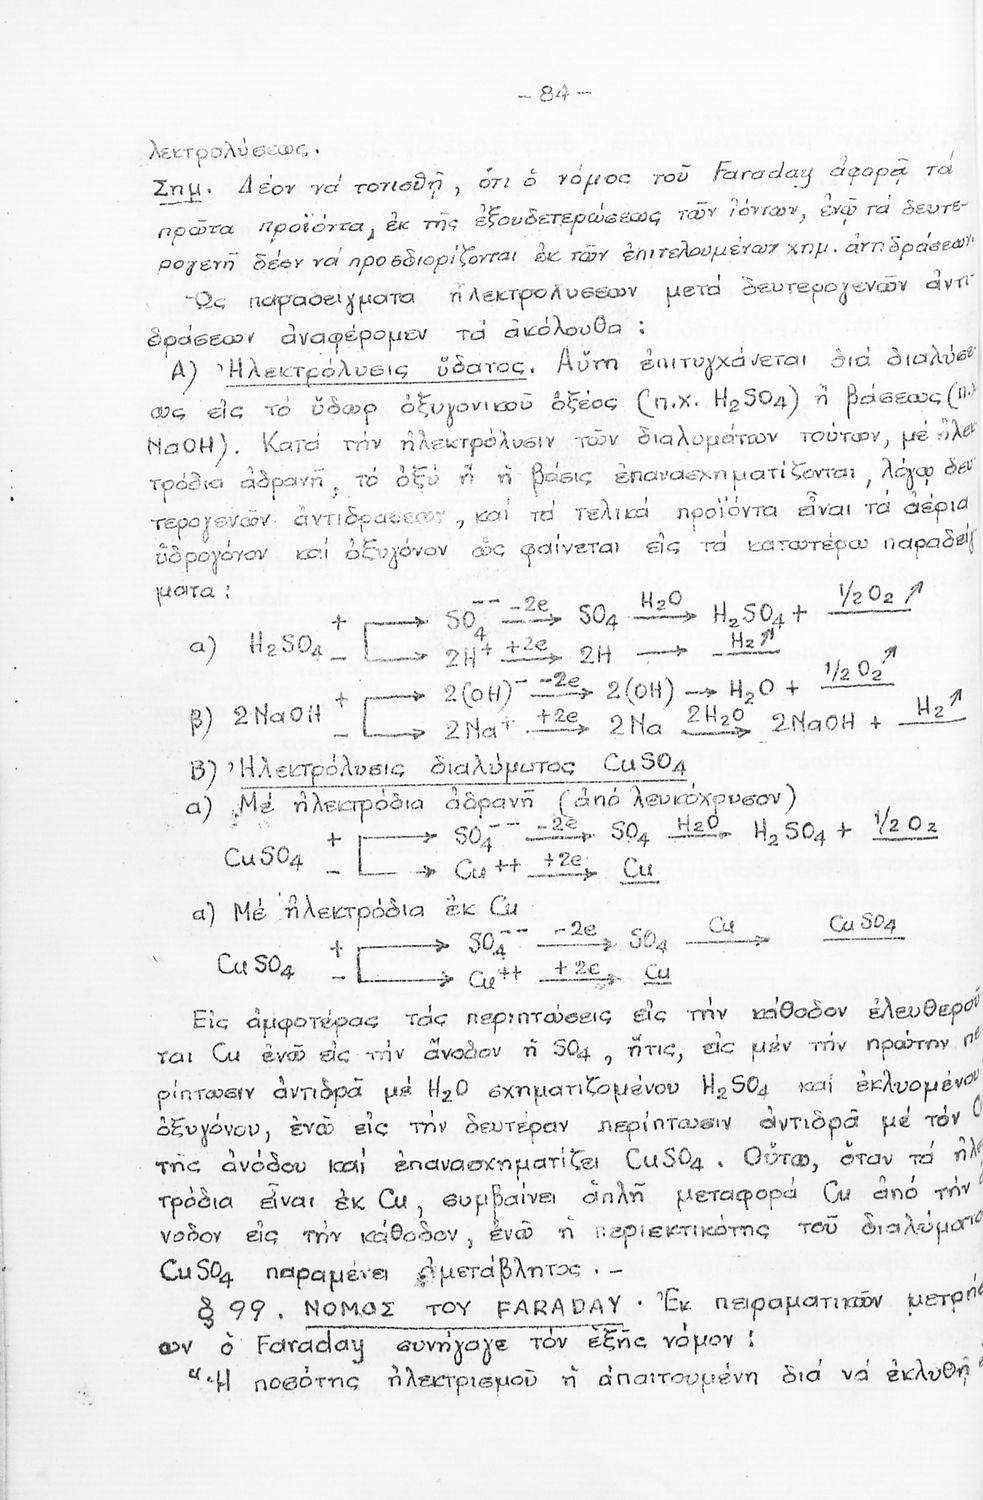 - 84 -
λεκτρολύσεως.
Σημ. Δέον νά τονισθῇ, ὅτι ὁ νόμος τοῦ Faraday ἀφορᾷ τά
πρῶτα προϊόντα, ἐκ τῆς ἐξουδετερώσεως τῶν ἰόντων, ἐνῷ τά δευτε-
ρογενῆ δέον νά προσδιορίζονται ἐκ τῶν ἐπιτελουμένων χημ. ἀντιδράσεων
Ὡς παραδείγματα ἠλεκτρολύσεων μετά δευτερογενῶν ἀντι
δράσεων ἀναφέρομεν τά ἀκόλουθα :
Α) Ἠλεκτρόλυσις ὕδατος. Αὕτη ἐπιτυγχάνεται διά διαλύσε
ως εἰς τό ὕδωρ ὀξυγονικοῦ ὀξέος (π.χ. H₂SO₄) ἤ βάσεως (π.χ
NaOH). Κατά τήν ἠλεκτρόλυσιν τῶν διαλυμάτων τούτων, μέ ἠλεκ
τρόδια ἀδρανῆ, τό ὀξύ ἤ ἡ βάσις ἐπανασχηματίζονται, λόγῳ δευ
τερογενῶν ἀντιδράσεων, καί τά τελικά προϊόντα εἶναι τά ἀέρια
ὑδρογόνον καί ὀξυγόνον ὡς φαίνεται εἰς τά κατωτέρω παραδείγ
ματα :
+ SO₄⁻⁻ -2e→ SO₄ H₂O→ H₂SO₄ + 1/2 O₂↗
α) H₂SO₄
- 2H⁺ +2e→ 2H → H₂↗
+ 2(OH)⁻ -2e→ 2(OH) → H₂O + 1/2 O₂↗
β) 2NaOH
- 2Na⁺ +2e→ 2Na 2H₂O→ 2NaOH + H₂↗
Β) Ἠλεκτρόλυσις διαλύματος CuSO₄
α) Μέ ἠλεκτρόδια ἀδρανῆ (ἀπό λευκόχρυσον)
+ SO₄⁻⁻ -2e→ SO₄ H₂O→ H₂SO₄ + 1/2 O₂
CuSO₄
- Cu⁺⁺ +2e→ Cu
α) Μέ ἠλεκτρόδια ἐκ Cu
+ SO₄⁻⁻ -2e→ SO₄ Cu→ CuSO₄
CuSO₄
- Cu⁺⁺ +2e→ Cu
Εἰς ἀμφοτέρας τάς περιπτώσεις εἰς τήν κάθοδον ἐλευθεροῦ
ται Cu ἐνῶ εἰς τήν ἄνοδον ἡ SO₄, ἥτις, εἰς μέν τήν πρώτην πε
ρίπτωσιν ἀντιδρᾶ μέ H₂O σχηματιζομένου H₂SO₄ καί ἐκλυομένου
ὀξυγόνου, ἐνῶ εἰς τήν δευτέραν περίπτωσιν ἀντιδρᾶ μέ τόν
τῆς ἀνόδου καί ἐπανασχηματίζει CuSO₄. Οὕτω, ὅταν τά ἠλε
τρόδια εἶναι ἐκ Cu, συμβαίνει ἁπλῆ μεταφορά Cu ἀπό τήν
νοδον εἰς τήν κάθοδον, ἐνῶ ἡ περιεκτικότης τοῦ διαλύματο
CuSO₄ παραμένει ἀμετάβλητος. -
§ 99. ΝΟΜΟΣ ΤΟΥ FARADAY. Ἐκ πειραματικῶν μετρήσ
ων ὁ Faraday συνήγαγε τόν ἑξῆς νόμον :
"Ἡ ποσότης ἠλεκτρισμοῦ ἡ ἀπαιτουμένη διά νά ἐκλυθῇ